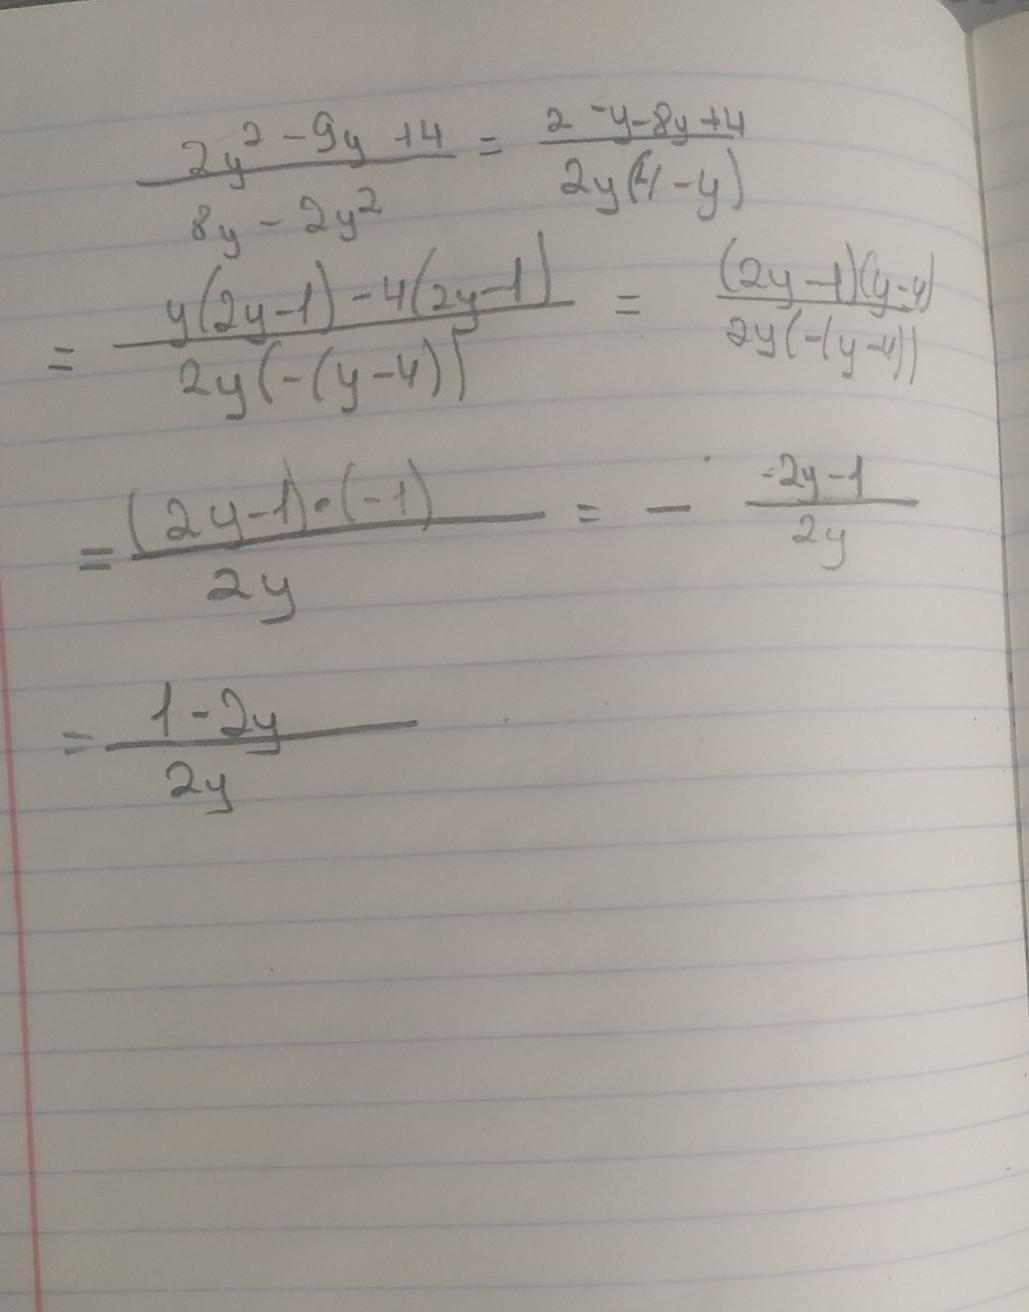 2y² - 9y + 4 / 8y - 2y² = 2 - y - 8y + 4 / 2y(4 - y)
= y(2y-1) - 4(2y-1) / 2y(-(y-4)) = (2y-1)(y-4) / 2y(-(y-4))
= (2y-1)·(-1) / 2y = - -2y-1 / 2y
= 1-2y / 2y